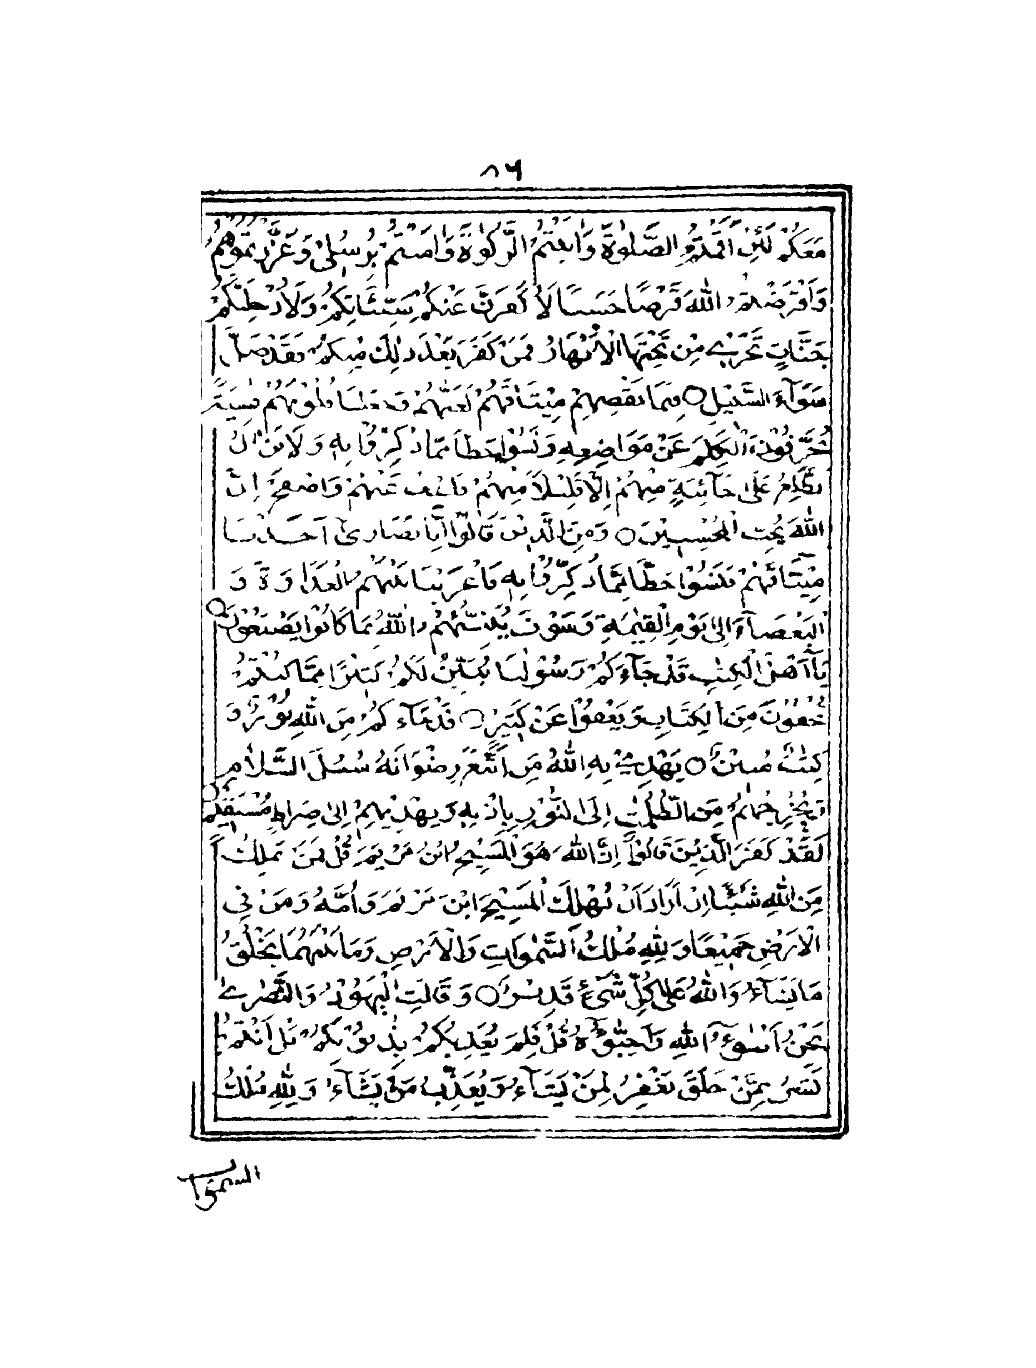 ٨٦
مَعَكُمْ لَئِنْ أَقَمْتُمُ الصَّلٰوةَ وَآتَيْتُمُ الزَّكٰوةَ وَآمَنْتُمْ بِرُسُلِيْ وَعَزَّرْتُمُوْهُمْ
وَأَقْرَضْتُمُ اللّٰهَ قَرْضًا حَسَنًا لَأُكَفِّرَنَّ عَنْكُمْ سَيِّئَاتِكُمْ وَلَأُدْخِلَنَّكُمْ
جَنَّاتٍ تَجْرِيْ مِنْ تَحْتِهَا الْأَنْهَارُ فَمَنْ كَفَرَ بَعْدَ ذٰلِكَ مِنْكُمْ فَقَدْ ضَلَّ
سَوَآءَ السَّبِيْلِ ○ فَبِمَا نَقْضِهِمْ مِيْثَاقَهُمْ لَعَنّٰهُمْ وَجَعَلْنَا قُلُوْبَهُمْ قٰسِيَةً
يُحَرِّفُوْنَ الْكَلِمَ عَنْ مَوَاضِعِهِ وَنَسُوْا حَظًّا مِمَّا ذُكِّرُوْا بِهِ وَلَا تَزَالُ
تَطَّلِعُ عَلٰى خَآئِنَةٍ مِنْهُمْ إِلَّا قَلِيْلًا مِنْهُمْ فَاعْفُ عَنْهُمْ وَاصْفَحْ إِنَّ
اللّٰهَ يُحِبُّ الْمُحْسِنِيْنَ ○ وَمِنَ الَّذِيْنَ قَالُوْٓا إِنَّا نَصَارٰى أَخَذْنَا
مِيْثَاقَهُمْ فَنَسُوْا حَظًّا مِمَّا ذُكِّرُوْا بِهِ فَأَغْرَيْنَا بَيْنَهُمُ الْعَدَاوَةَ وَ
الْبَغْضَآءَ إِلٰى يَوْمِ الْقِيٰمَةِ وَسَوْفَ يُنَبِّئُهُمُ اللّٰهُ بِمَا كَانُوْا يَصْنَعُوْنَ ○
يَآ أَهْلَ الْكِتٰبِ قَدْ جَآءَكُمْ رَسُوْلُنَا يُبَيِّنُ لَكُمْ كَثِيْرًا مِمَّا كُنْتُمْ
تُخْفُوْنَ مِنَ الْكِتَابِ وَيَعْفُوْا عَنْ كَثِيْرٍ ○ قَدْ جَآءَكُمْ مِنَ اللّٰهِ نُوْرٌ وَ
كِتٰبٌ مُبِيْنٌ ○ يَهْدِيْ بِهِ اللّٰهُ مَنِ اتَّبَعَ رِضْوَانَهُ سُبُلَ السَّلَامِ
وَيُخْرِجُهُمْ مِنَ الظُّلُمٰتِ إِلَى النُّوْرِ بِإِذْنِهِ وَيَهْدِيْهِمْ إِلٰى صِرَاطٍ مُسْتَقِيْمٍ ○
لَقَدْ كَفَرَ الَّذِيْنَ قَالُوْٓا إِنَّ اللّٰهَ هُوَ الْمَسِيْحُ ابْنُ مَرْيَمَ قُلْ فَمَنْ يَمْلِكُ
مِنَ اللّٰهِ شَيْئًا إِنْ أَرَادَ أَنْ يُهْلِكَ الْمَسِيْحَ ابْنَ مَرْيَمَ وَأُمَّهُ وَمَنْ فِي
الْأَرْضِ جَمِيْعًا وَلِلّٰهِ مُلْكُ السَّمٰوَاتِ وَالْأَرْضِ وَمَا بَيْنَهُمَا يَخْلُقُ
مَا يَشَآءُ وَاللّٰهُ عَلٰى كُلِّ شَيْءٍ قَدِيْرٌ ○ وَقَالَتِ الْيَهُوْدُ وَالنَّصٰرٰى
نَحْنُ أَبْنٰؤُا اللّٰهِ وَأَحِبَّآؤُهُ قُلْ فَلِمَ يُعَذِّبُكُمْ بِذُنُوْبِكُمْ بَلْ أَنْتُمْ
بَشَرٌ مِمَّنْ خَلَقَ يَغْفِرُ لِمَنْ يَشَآءُ وَيُعَذِّبُ مَنْ يَشَآءُ وَلِلّٰهِ مُلْكُ
السمٰوات